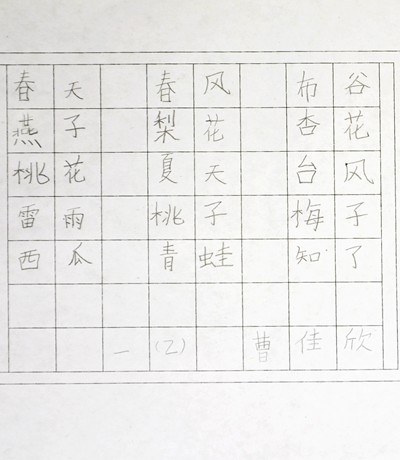 春天 春风 布谷
燕子 梨花 杏花
桃花 夏天 台风
雷雨 桃子 梅子
西瓜 青蛙 知了
一(2) 曹佳欣